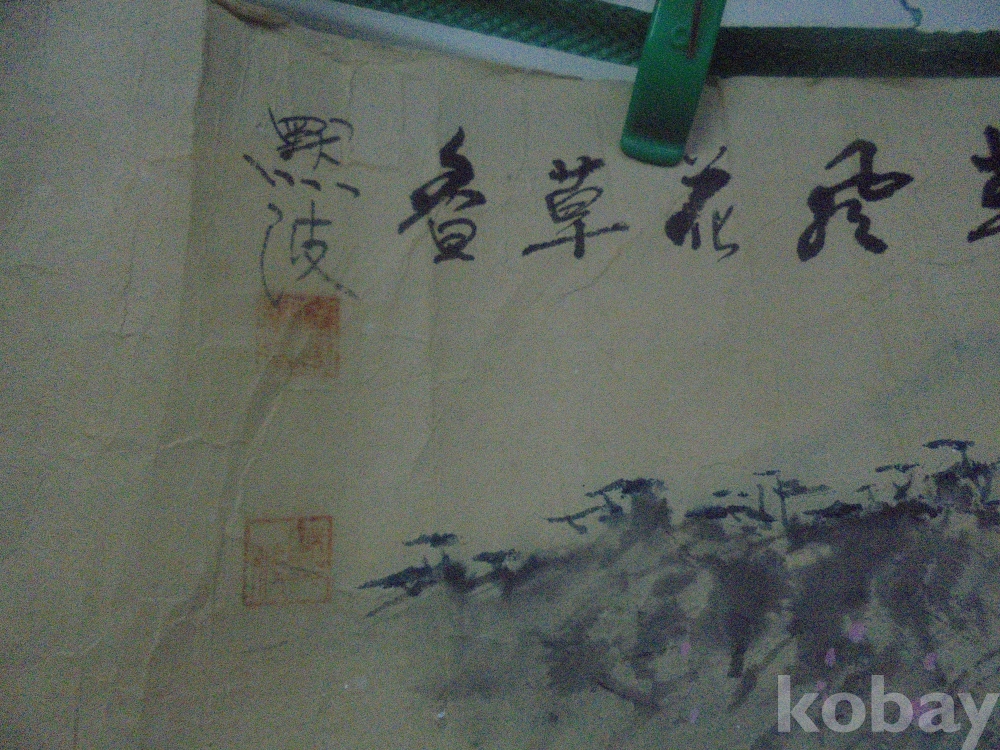 風花草香
默波
kobay